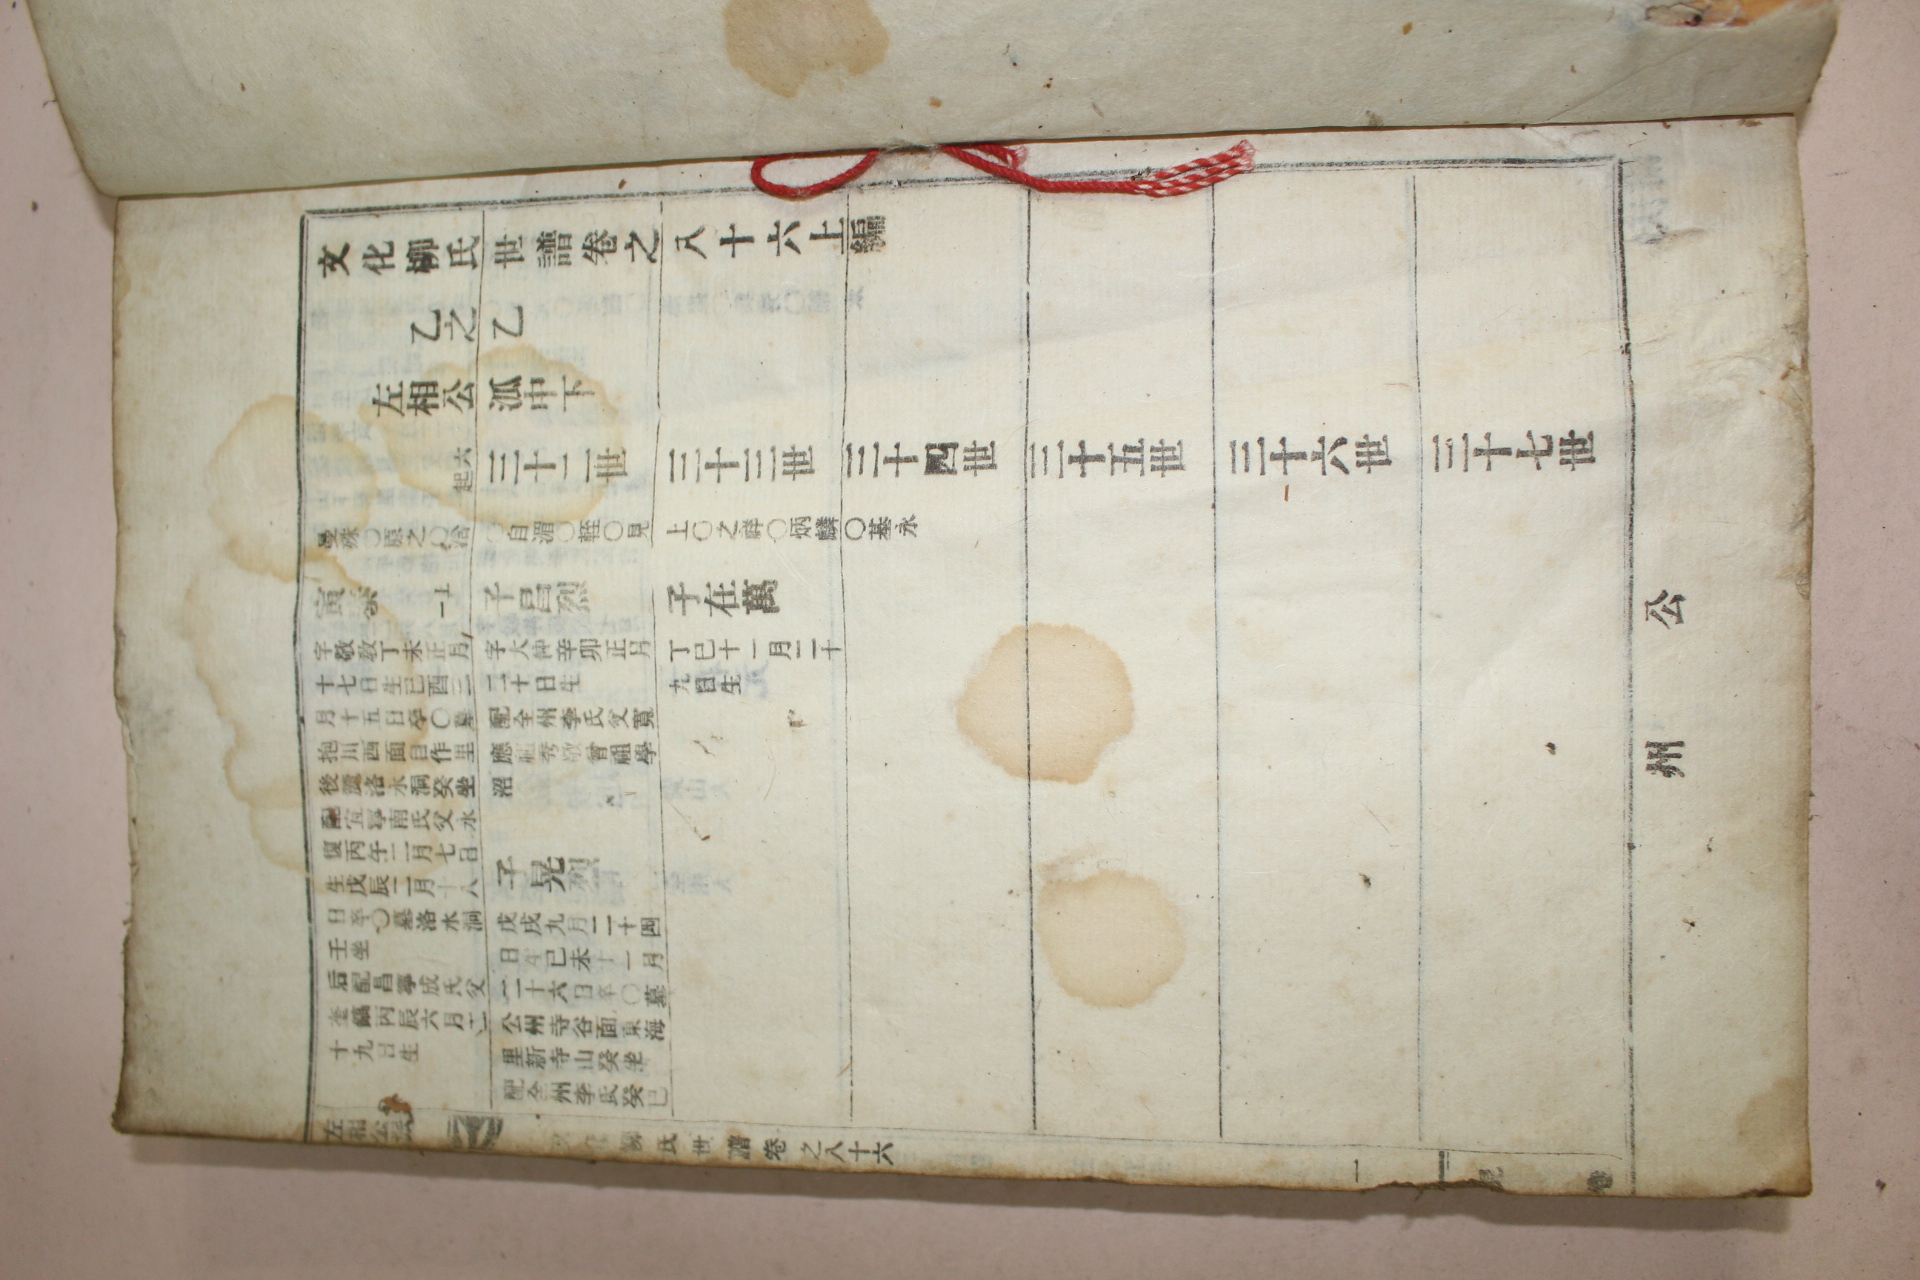 文化柳氏世譜卷之八十六上編
乙之乙
左相公派中下
六起
三十二世
三十三世
三十四世
三十五世
三十六世
三十七世
曼殊○原之○洽
自湄○輊○見
上○之祥○炳麟○基永
寅泰
一上
字敬敎丁未正月
十七日生已酉三
月十五日卒○墓
抱川西面自作里
後麓洛水洞癸坐
配宜寧南氏父水
復丙午二月七日
生戊辰二月十八
日卒○墓洛水洞
壬坐
后配昌寧成氏父
奎鎬丙辰六月二
十九日生
子昌烈
字大仲辛卯正月
二十日生
配全州李氏父寬
應祖秀敬曾祖學
沼
子晃烈
戊戌九月二十四
日生已未十一月
二十六日卒○墓
公州寺谷面東海
里新寺山癸坐
配全州李氏癸巳
子在萬
丁巳十一月二十
九日生
左相公派
柳氏世譜卷之八十六
一
公州